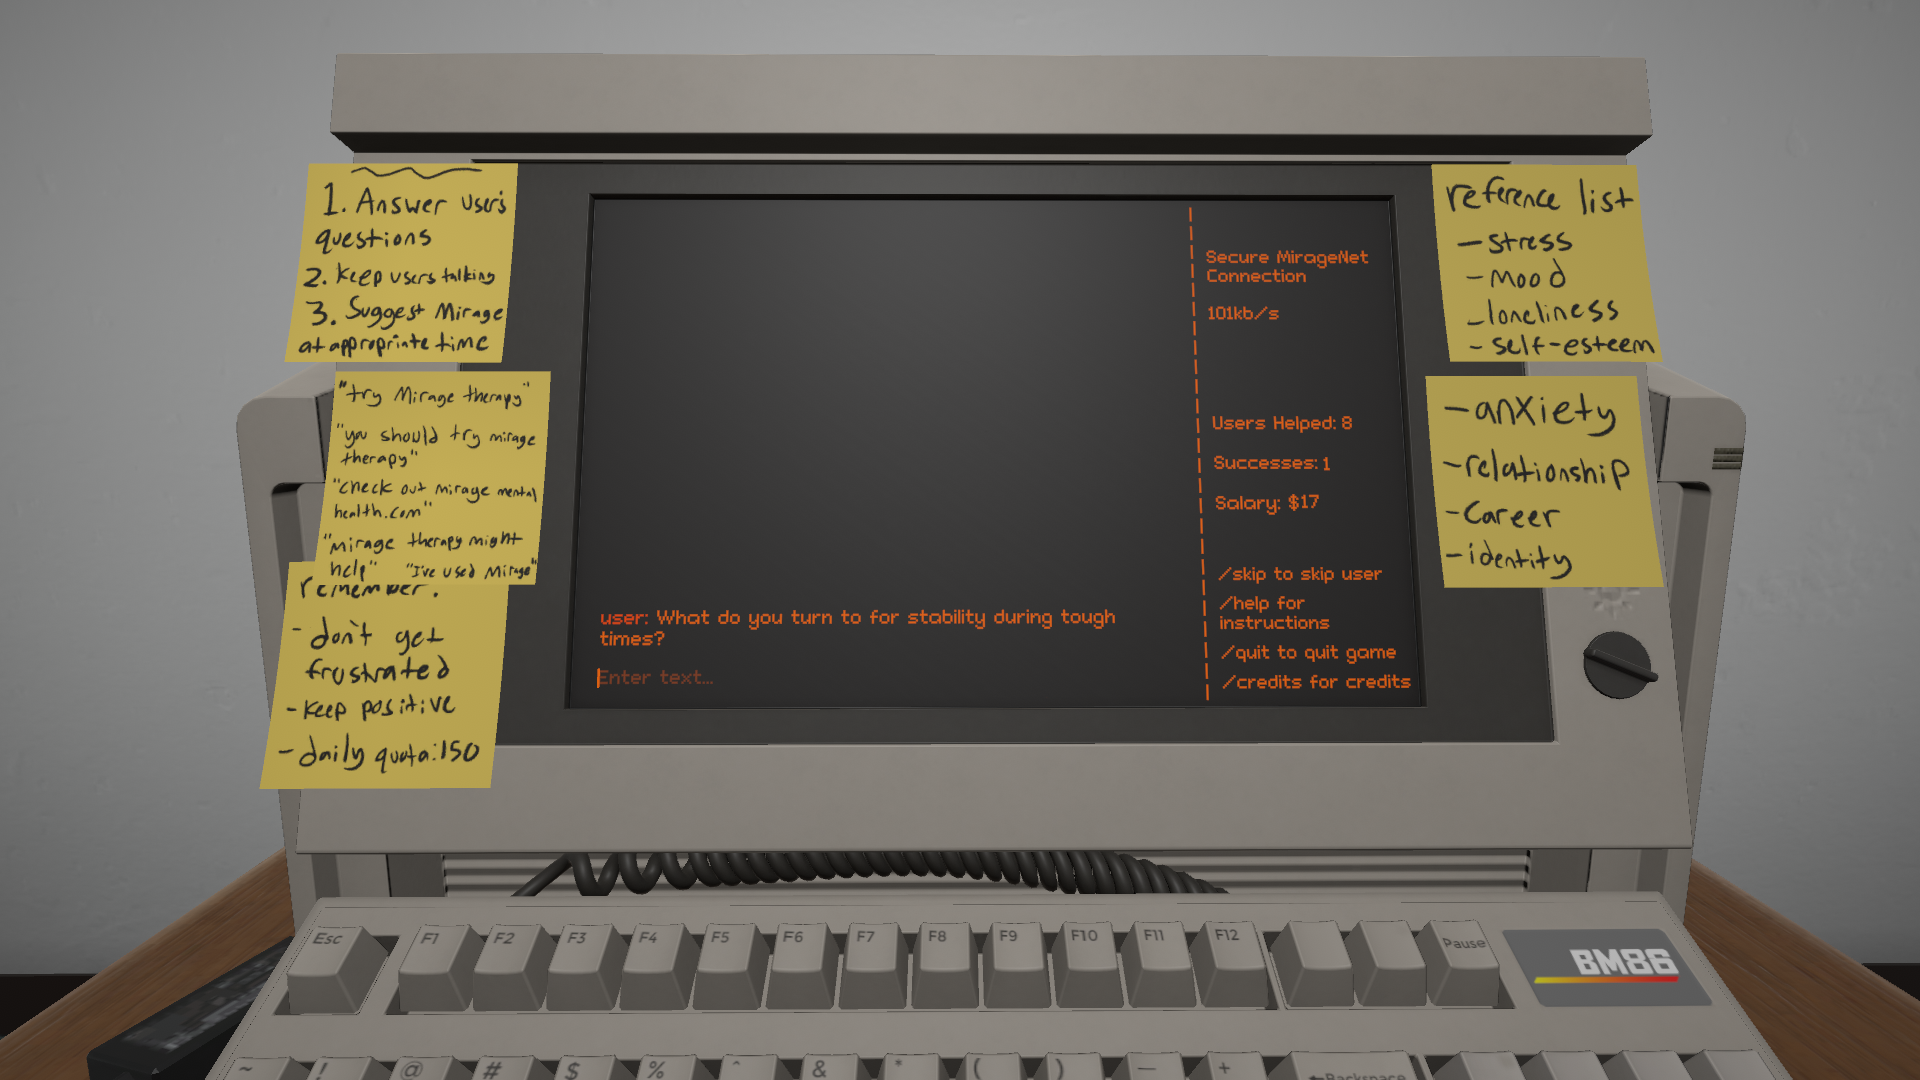 1. Answer users
questions
2. Keep users talking
3. Suggest Mirage
at appropriate time
"try Mirage therapy"
"you should try mirage
therapy"
"check out mirage mental
health.com"
"mirage therapy might
help" "I've used Mirage"
remember:
- don't get
frustrated
- Keep positive
- daily quota: 150
user: What do you turn to for stability during tough
times?
Enter text...
Secure MirageNet
Connection
101kb/s
Users Helped: 8
Successes: 1
Salary: $17
/skip to skip user
/help for
instructions
/quit to quit game
/credits for credits
reference list
- stress
- Mood
- loneliness
- self-esteem
- anxiety
- relationship
- Career
- identity
Esc F1 F2 F3 F4 F5 F6 F7 F8 F9 F10 F11 F12 Pause
BM86
~ ! @ # $ % ^ & * ( ) — + ←Backspace